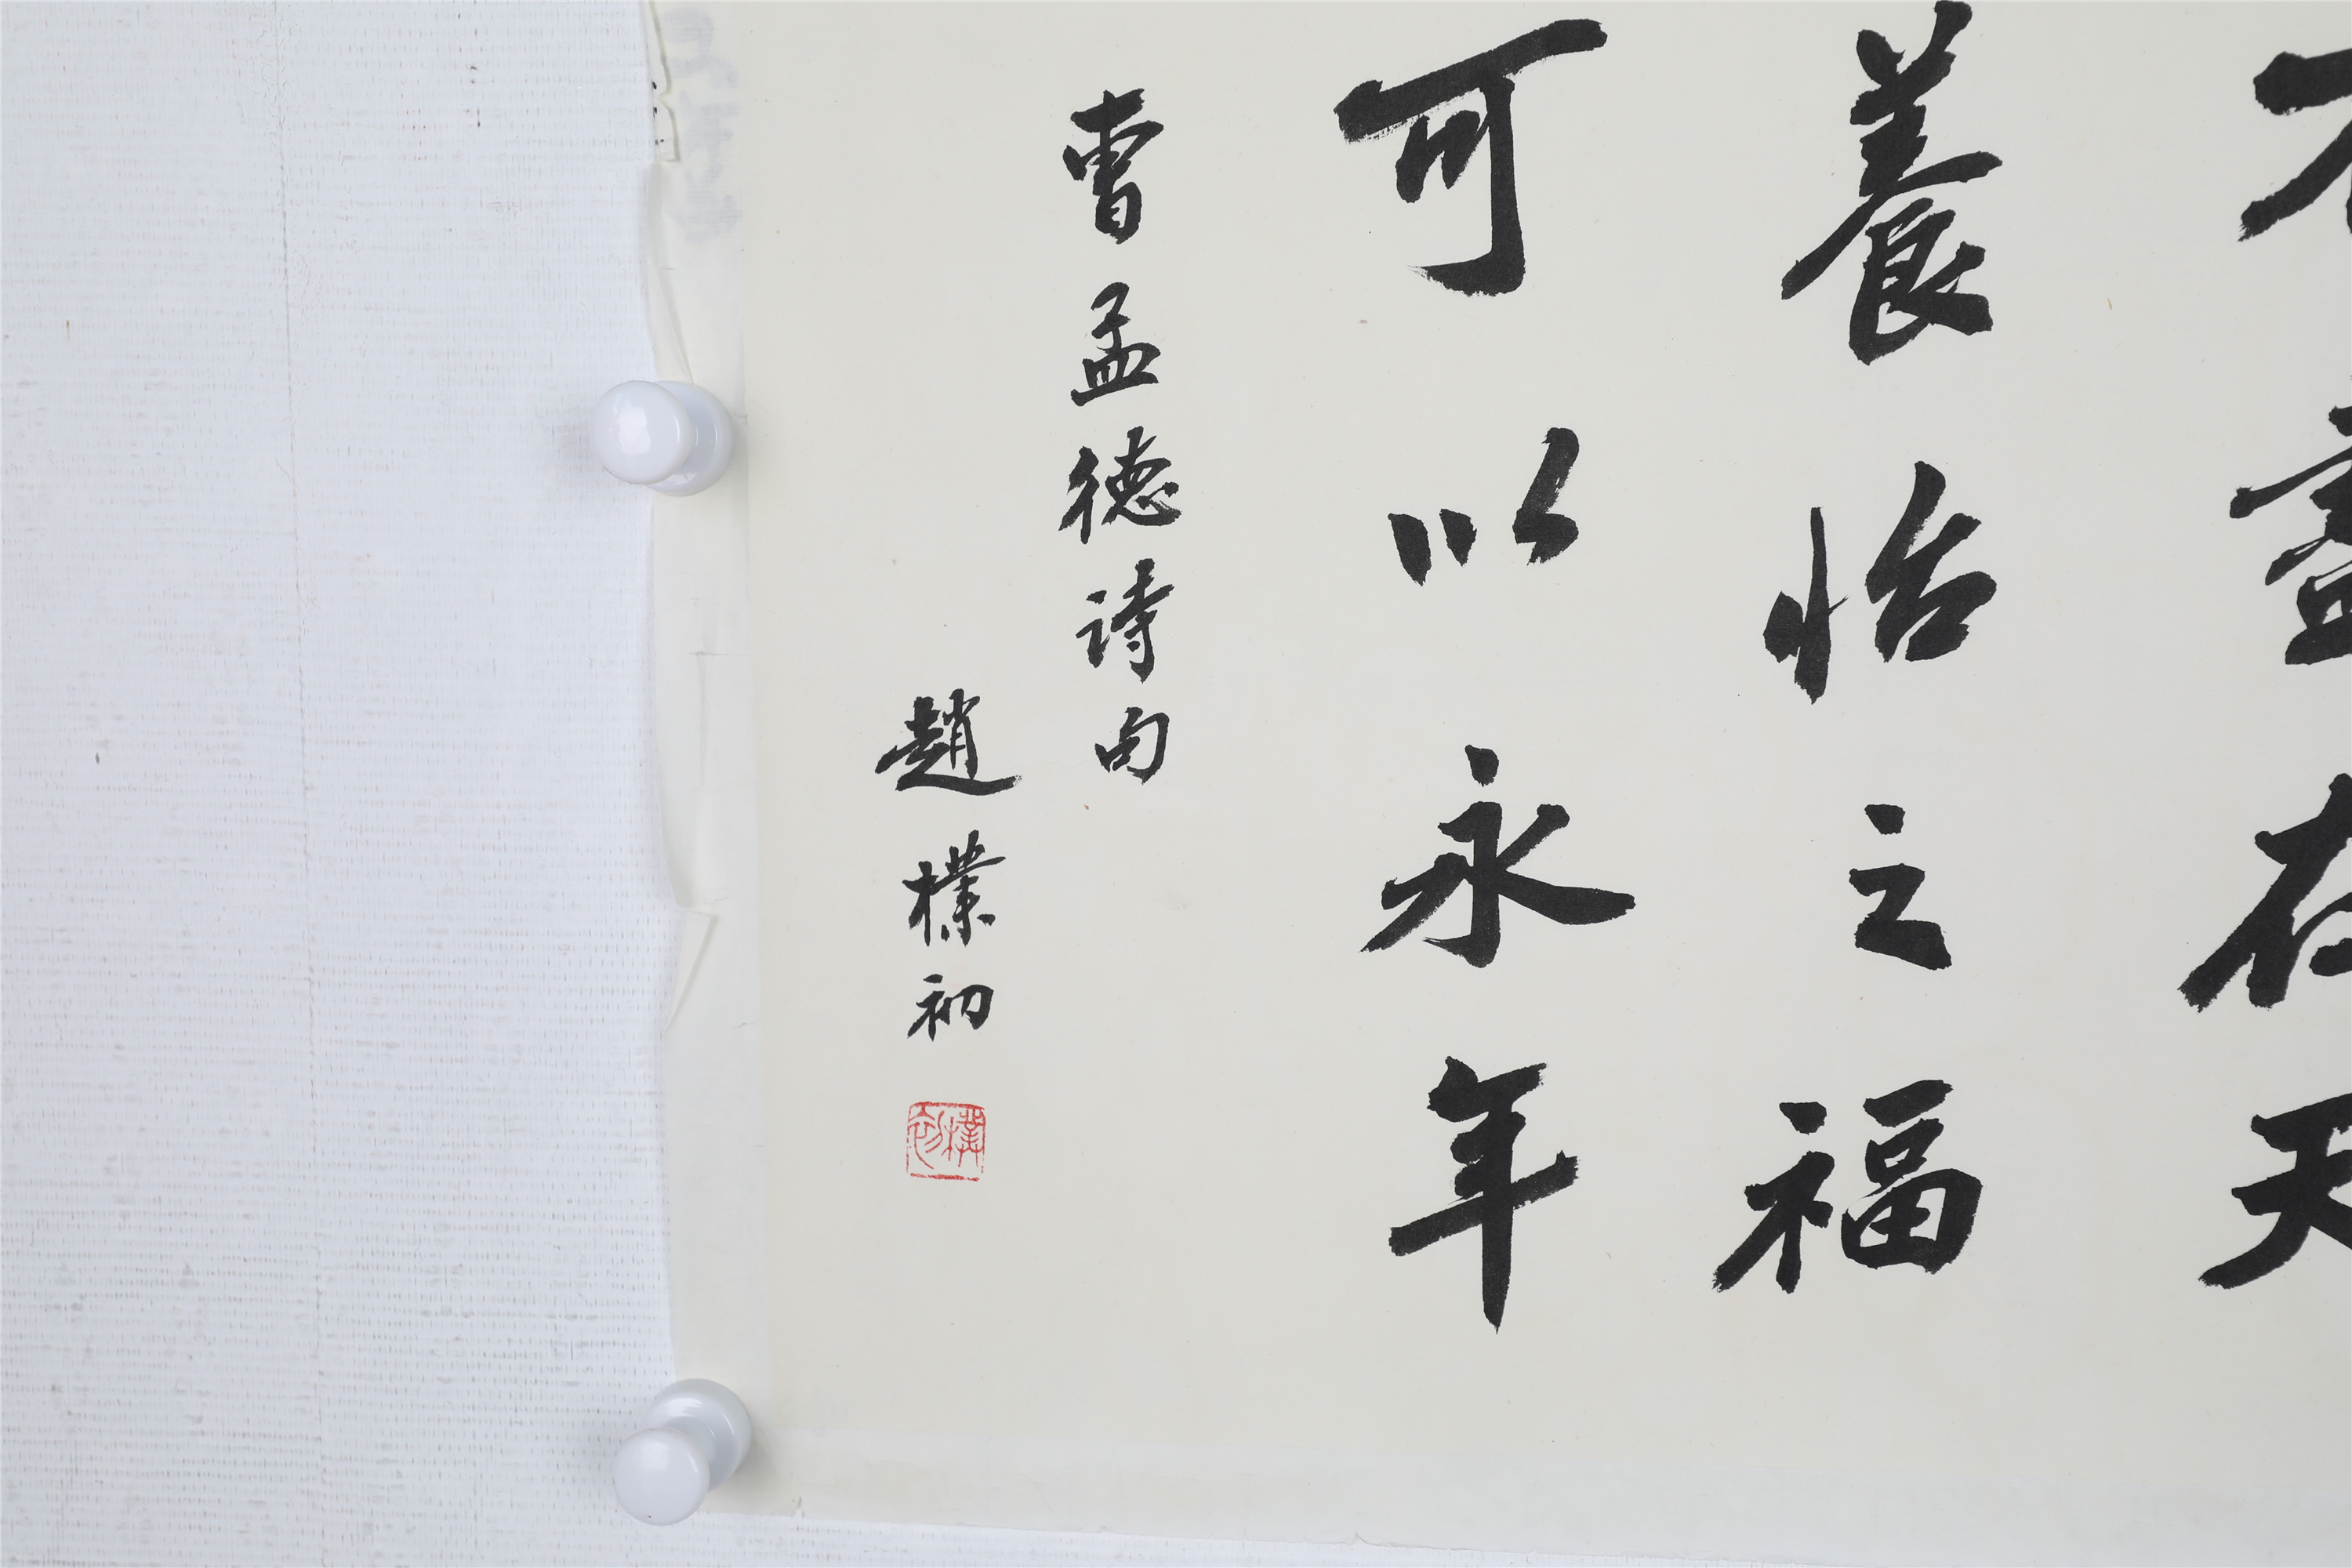 不盡在天
養怡之福
可以永年
曹孟德詩句
趙樸初
樸初